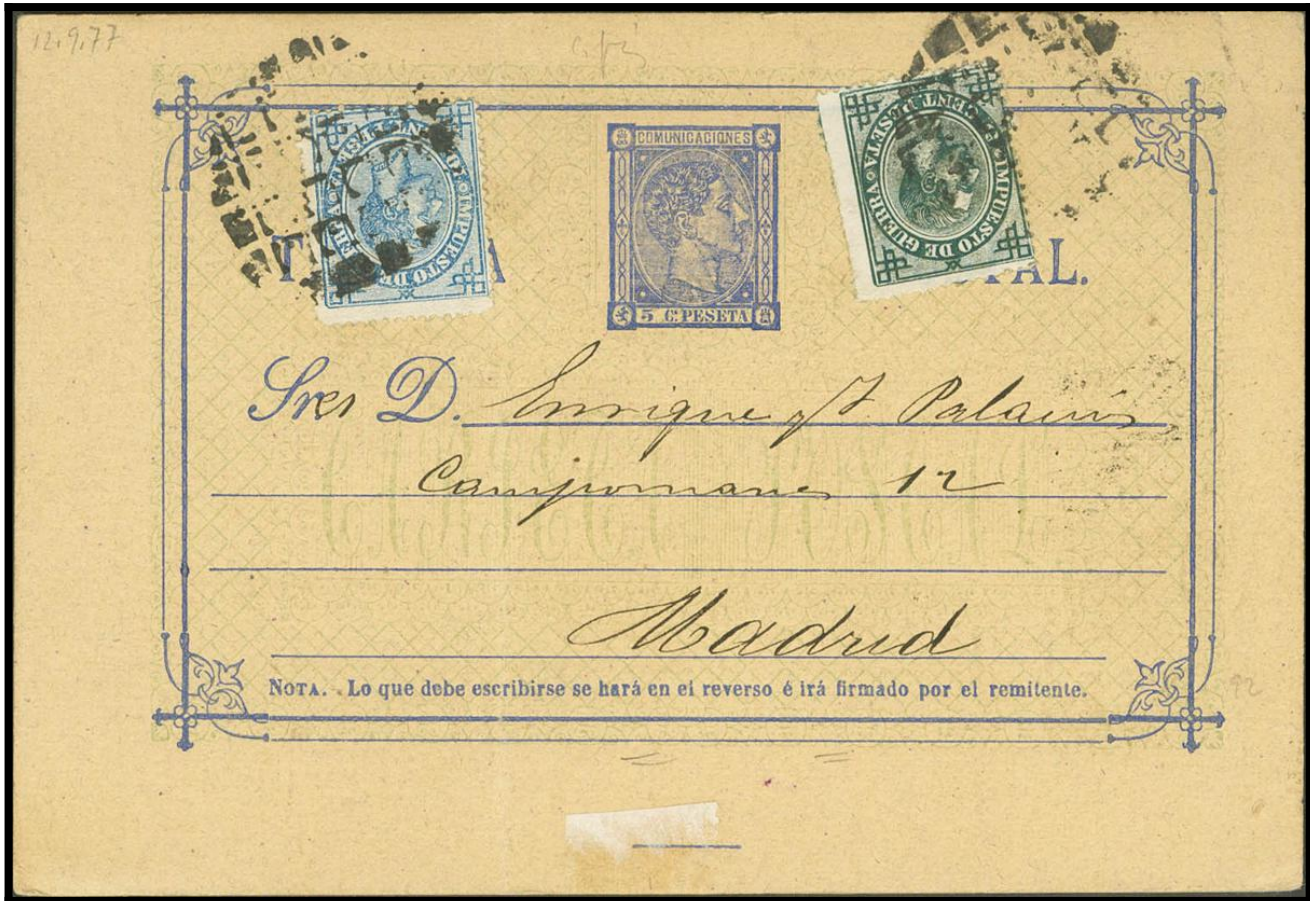 12.9.77
COMUNICACIONES
5 C. PESETA
IMPUESTO DE
IMPUESTO DE GUERRA
CENT DE PESETA
TAL.
Sres D. Enrique y J Palacios
Campomanes 12
Madrid
NOTA. Lo que debe escribirse se hará en el reverso é irá firmado por el remitente.
92